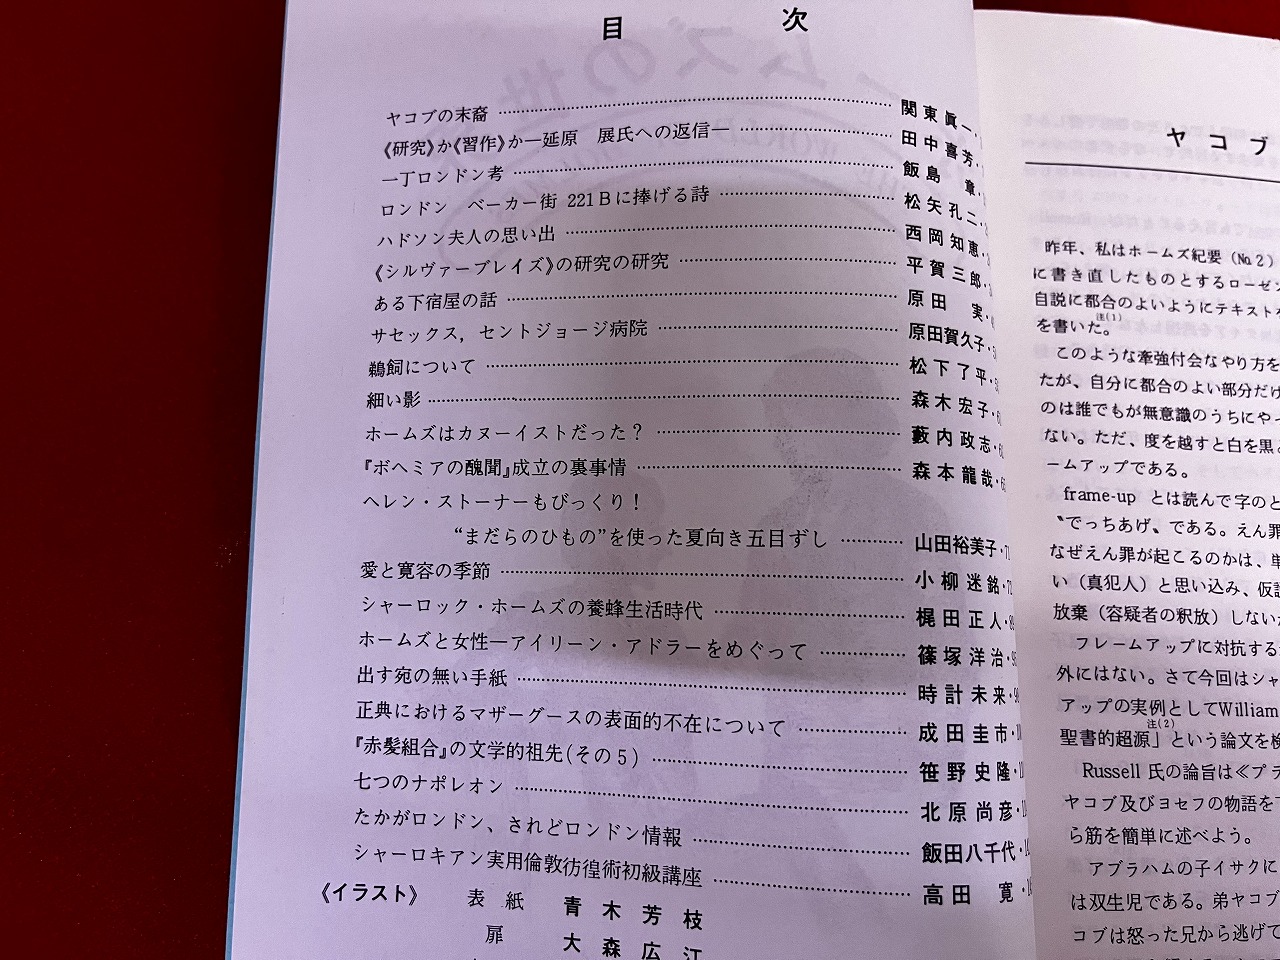 目 次
ヤコブの末裔 関東眞一
《研究》か《習作》か―延原 展氏への返信― 田中喜芳
一丁ロンドン考 飯島 章
ロンドン ベーカー街 221Bに捧げる詩 松矢孔二
ハドソン夫人の思い出 西岡知恵
《シルヴァーブレイズ》の研究の研究 平賀三郎
ある下宿屋の話 原田 実
サセックス，セントジョージ病院 原田賀久子
鵜飼について 松下了平
細い影 森木宏子
ホームズはカヌーイストだった？ 藪内政志
『ボヘミアの醜聞』成立の裏事情 森本龍哉
ヘレン・ストーナーもびっくり！
“まだらのひもの”を使った夏向き五目ずし 山田裕美子
愛と寛容の季節 小柳迷銘
シャーロック・ホームズの養蜂生活時代 梶田正人
ホームズと女性―アイリーン・アドラーをめぐって 篠塚洋治
出す宛の無い手紙 時計未来
正典におけるマザーグースの表面的不在について 成田圭市
『赤髪組合』の文学的祖先(その5) 笹野史隆
七つのナポレオン 北原尚彦
たかがロンドン、されどロンドン情報 飯田八千代
シャーロキアン実用倫敦彷徨術初級講座 高田 寛
《イラスト》 表紙 青木芳枝
扉 大森広江
ヤコブ
昨年、私はホームズ紀要（№2）
に書き直したものとするローゼン
自説に都合のよいようにテキスト
を書いた。注(1)
このような牽強付会なやり方を
たが、自分に都合のよい部分だけ
のは誰でもが無意識のうちにや
ない。ただ、度を越すと白を黒
ームアップである。
frame-up とは読んで字のと
〝でっちあげ〟である。えん罪
なぜえん罪が起こるのかは、単
い（真犯人）と思い込み、仮説
放棄（容疑者の釈放）しない
フレームアップに対抗する
外にはない。さて今回はシャ
アップの実例としてWilliam
聖書的超源」注(2)という論文を検
Russell 氏の論旨は≪プラ
ヤコブ及びヨセフの物語を下
ら筋を簡単に述べよう。
アブラハムの子イサクに
は双生児である。弟ヤコブ
コブは怒った兄から逃げて